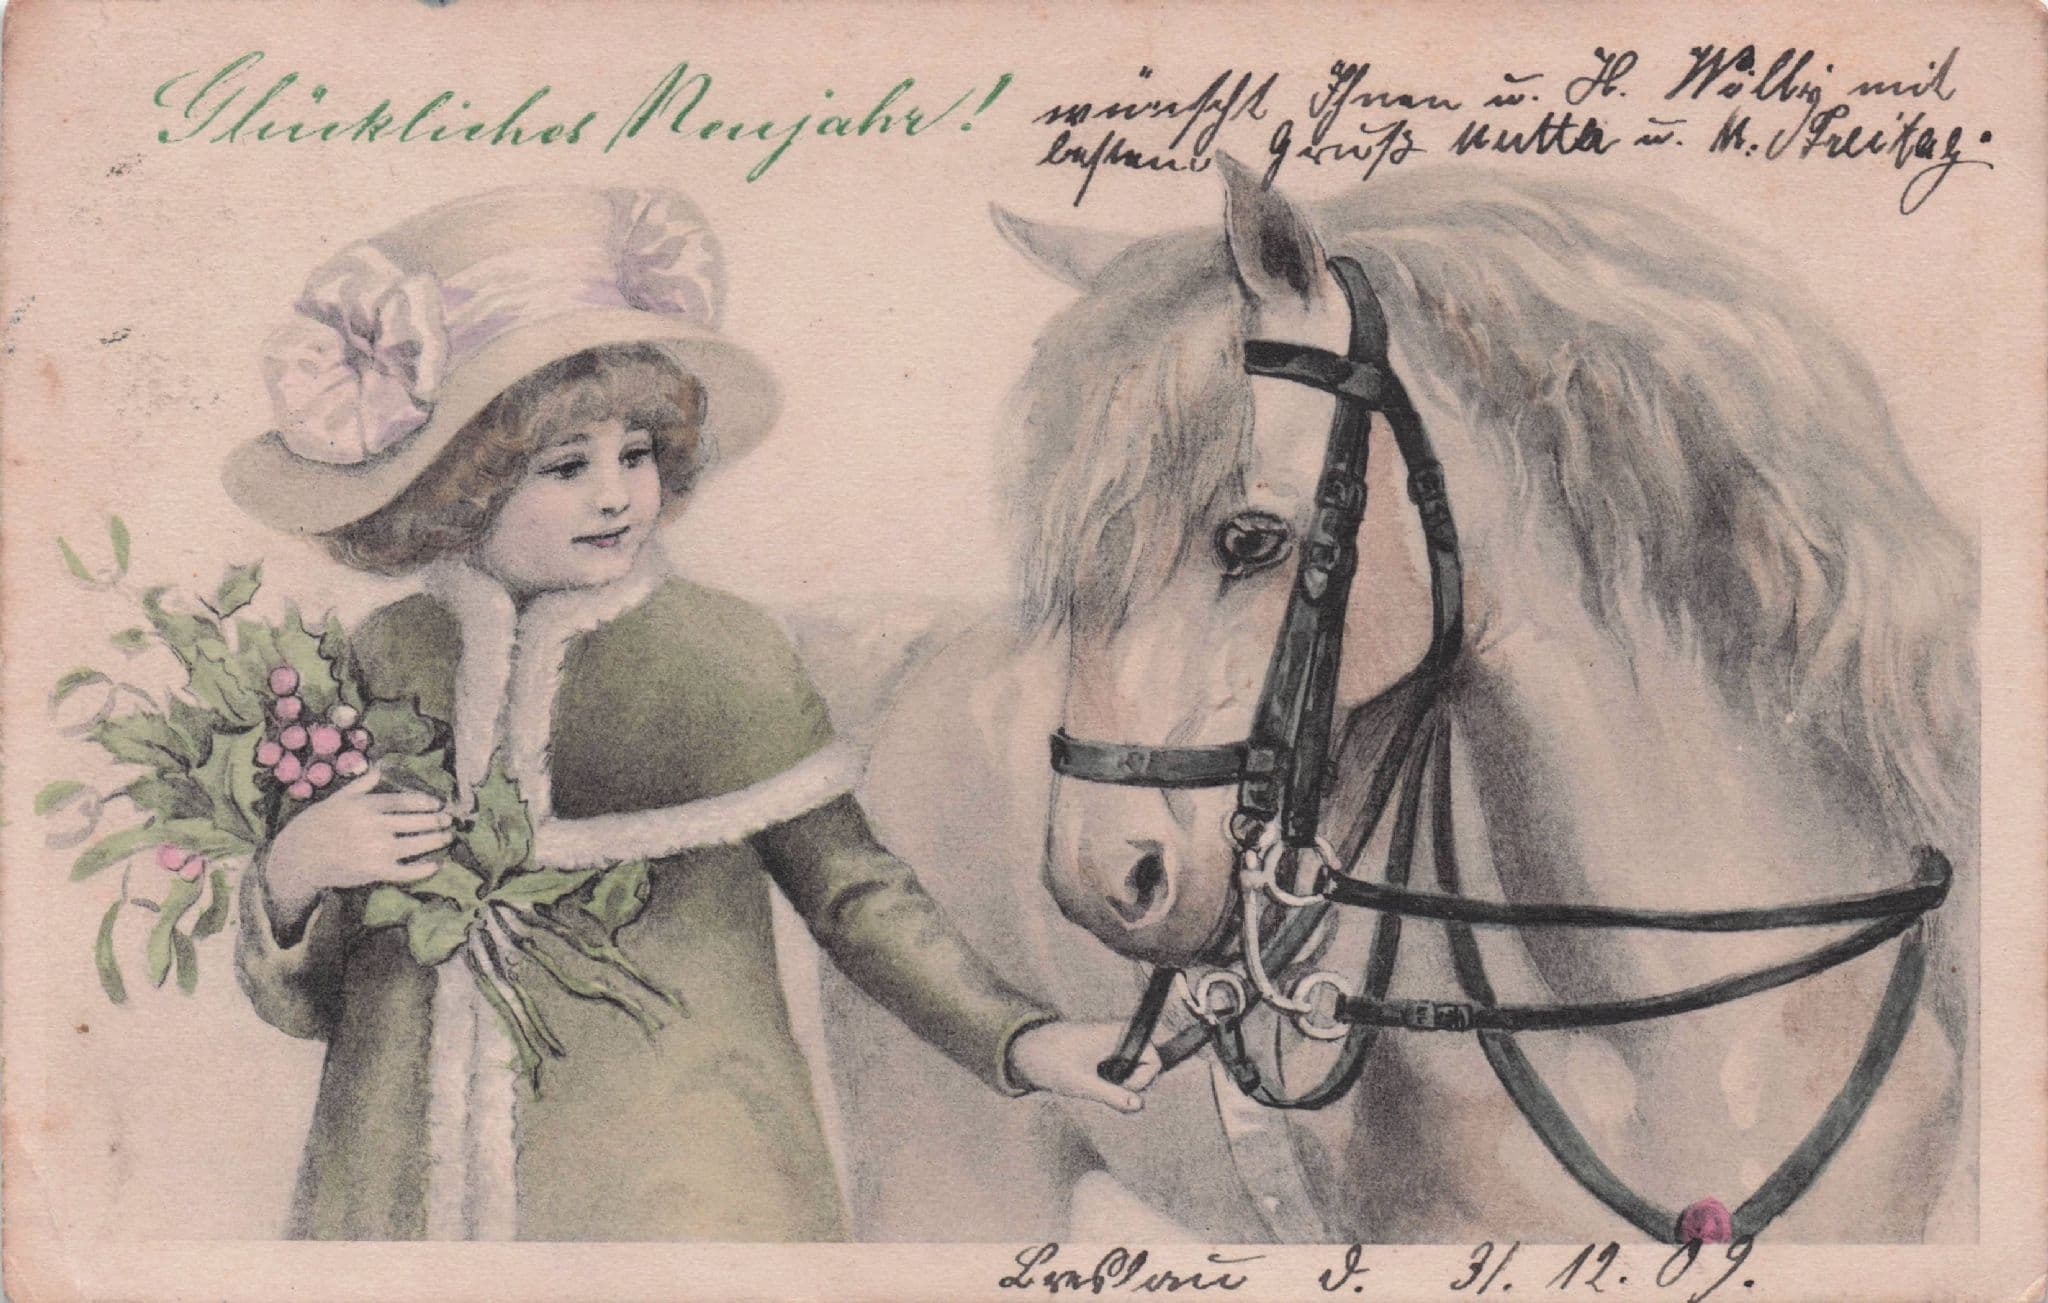 Glückliches Neujahr!
wünscht Ihnen u. H. Wölbig mit
besten Gruß Mutta u. M. Freitag.
Breslau d. 31. 12. 09.